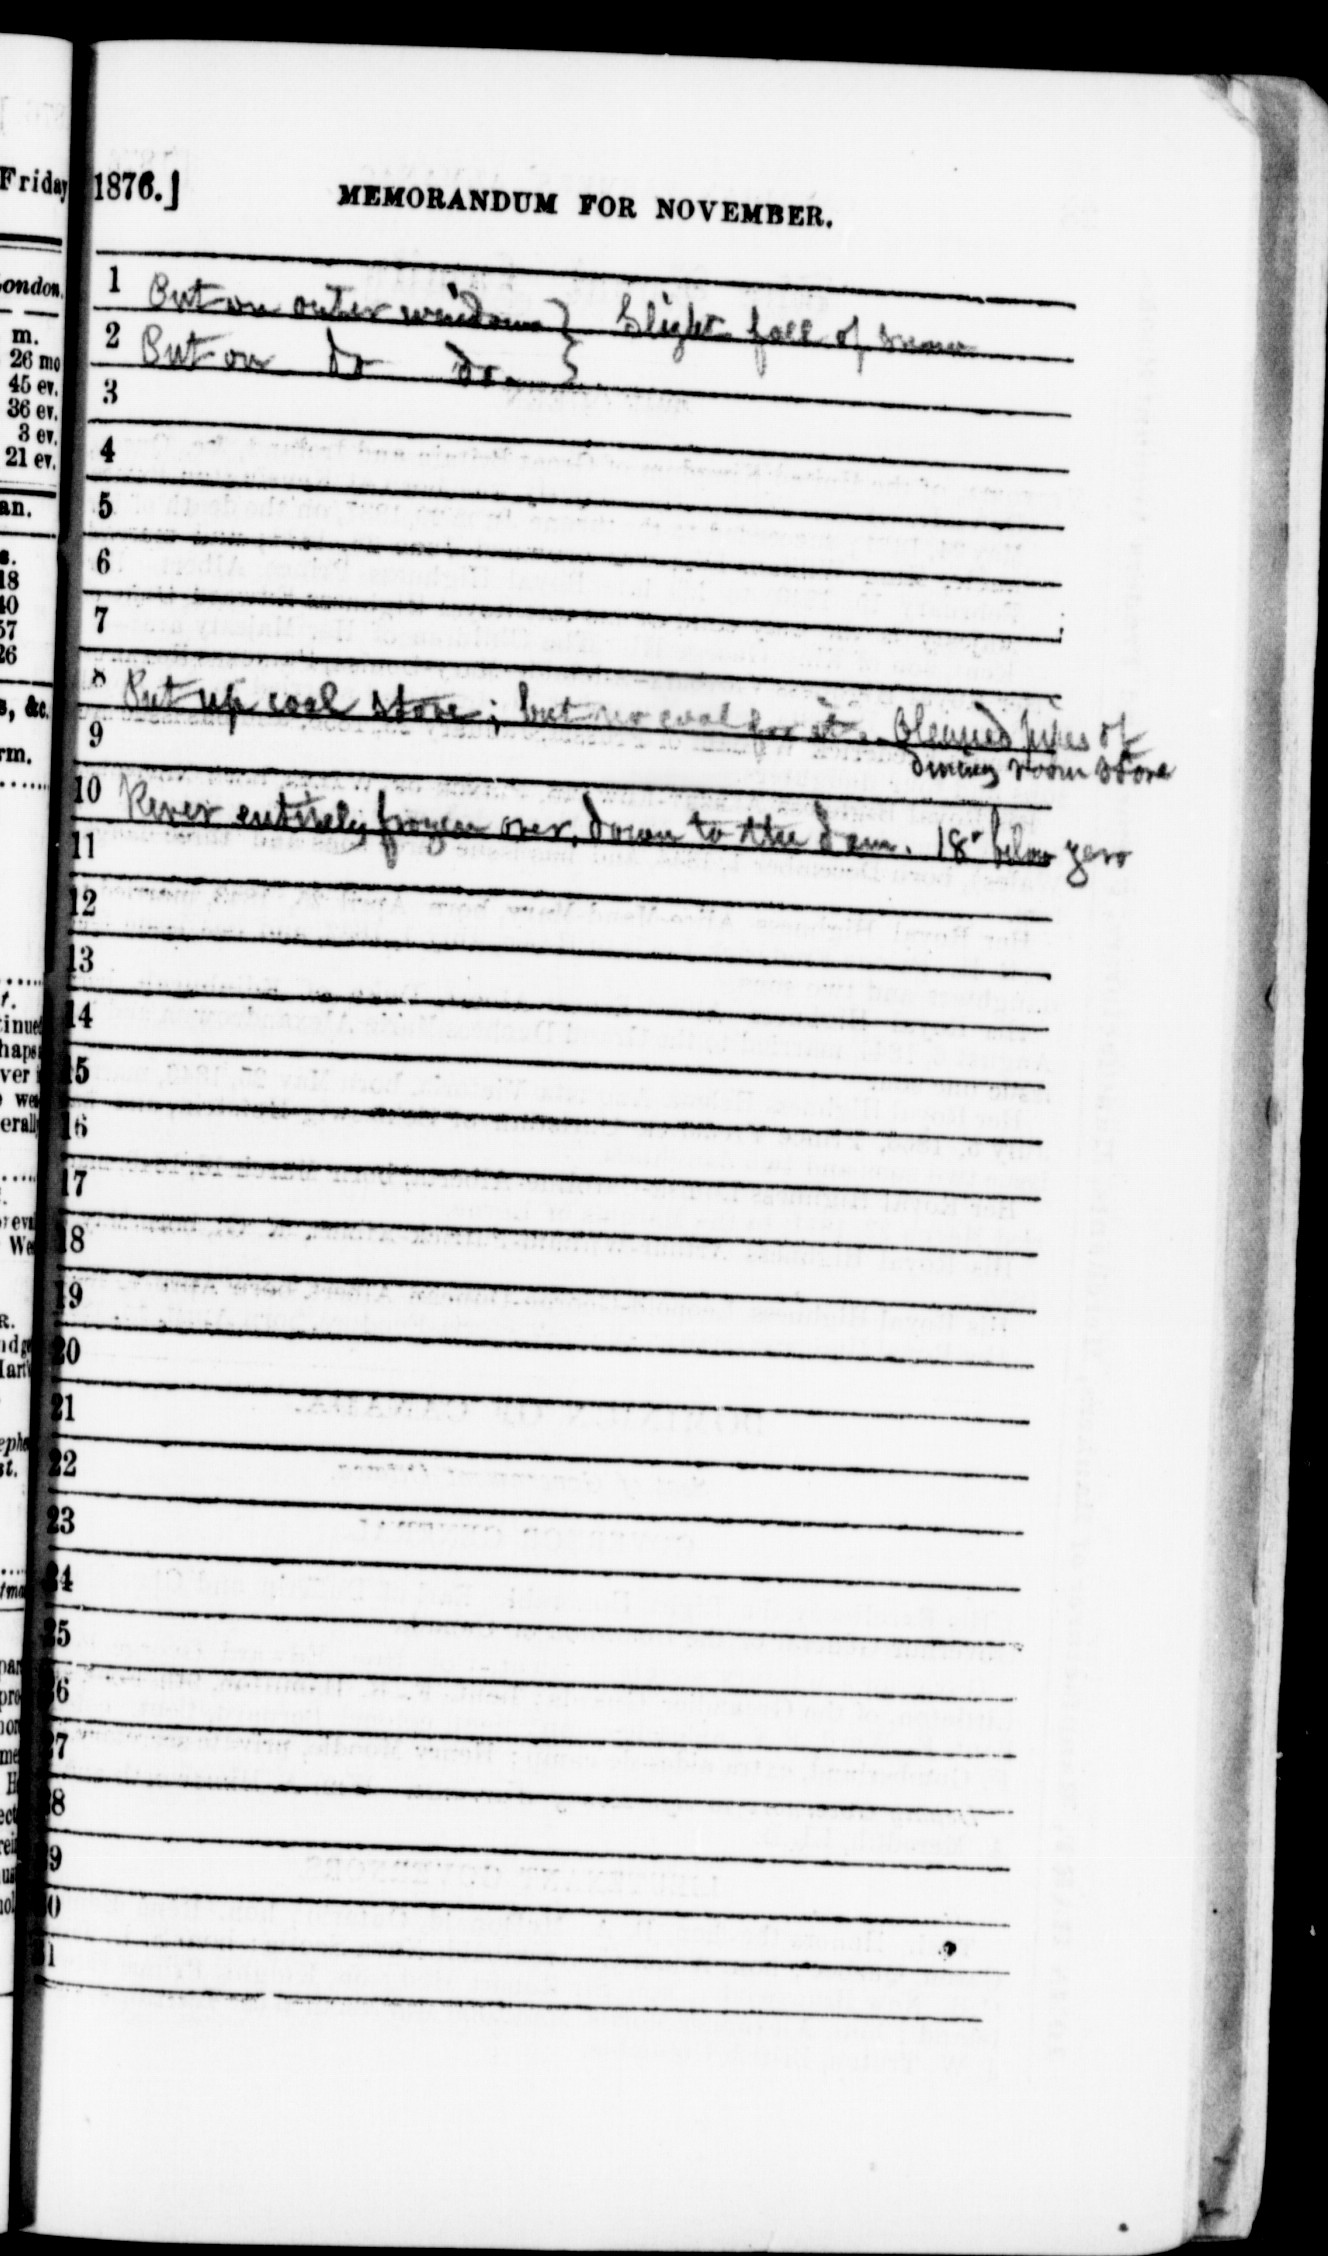 1876.]
MEMORANDUM FOR NOVEMBER.
1 Put on outer windows } Slight fall of snow
2 Put on do do. }
3
4
5
6
7
8 Put up coal stove; but no coal for it. Cleaned pipes of
dining room stove
9
10 River entirely frozen over, down to the dam. 18° below zero
11
12
13
14
15
16
17
18
19
20
21
22
23
24
25
26
27
28
29
30
31
Friday
London.
m.
26 mo
45 ev.
36 ev.
3 ev.
21 ev.
an.
s.
18
40
57
26
s, &c.
rm.